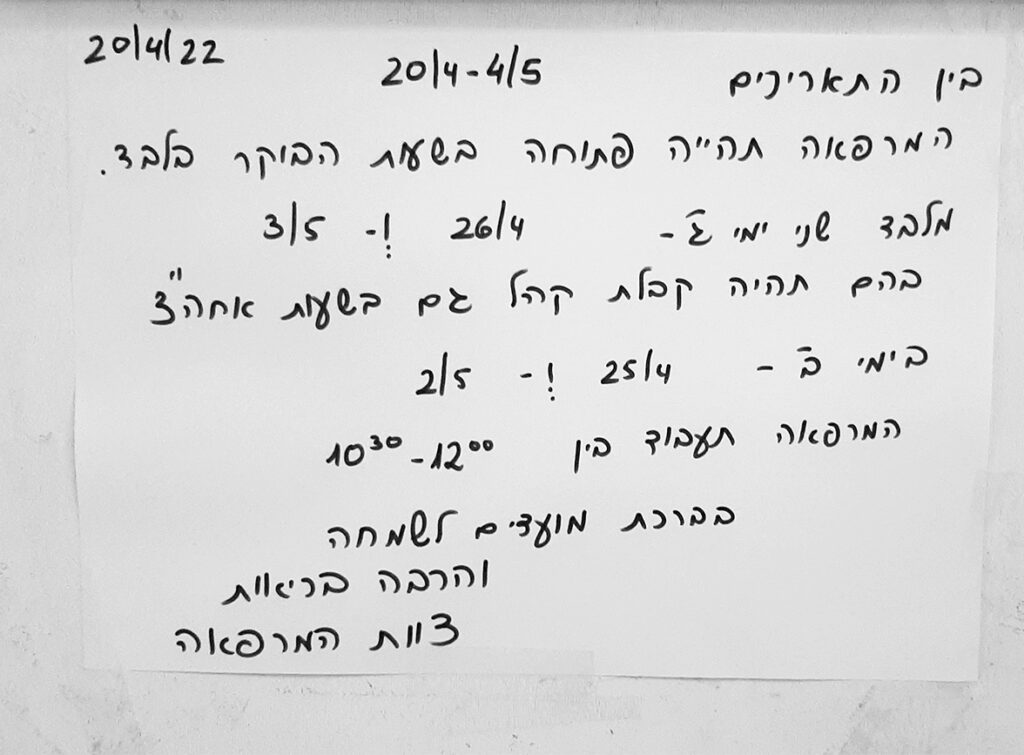 20/4/22
בין התאריכים 20/4-4/5
המרפאה תהייה פתוחה בשעות הבוקר בלבד.
מלבד שני ימי ג' - 26/4 ו- 3/5
בהם תהיה קבלת קהל גם בשעות אחה"צ
בימי ב' - 25/4 ו- 2/5
המרפאה תעבוד בין 10:30-12:00
בברכת מועדים לשמחה
והרבה בריאות
צוות המרפאה